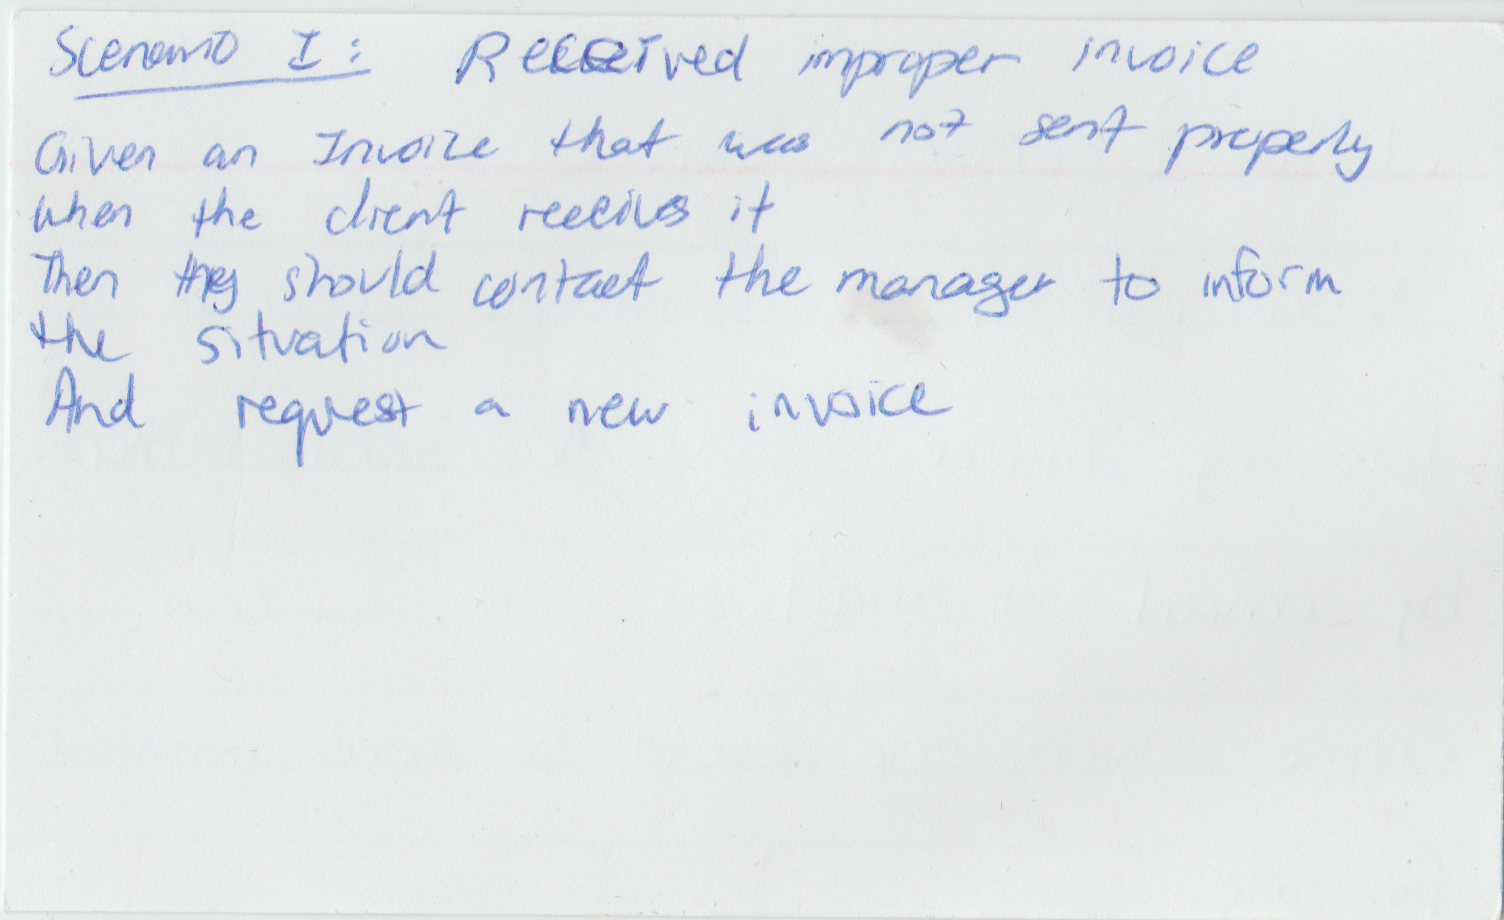 Scenario I: Received improper invoice
Given an Invoice that was not sent properly
when the client receives it
Then they should contact the manager to inform
the situation
And request a new invoice